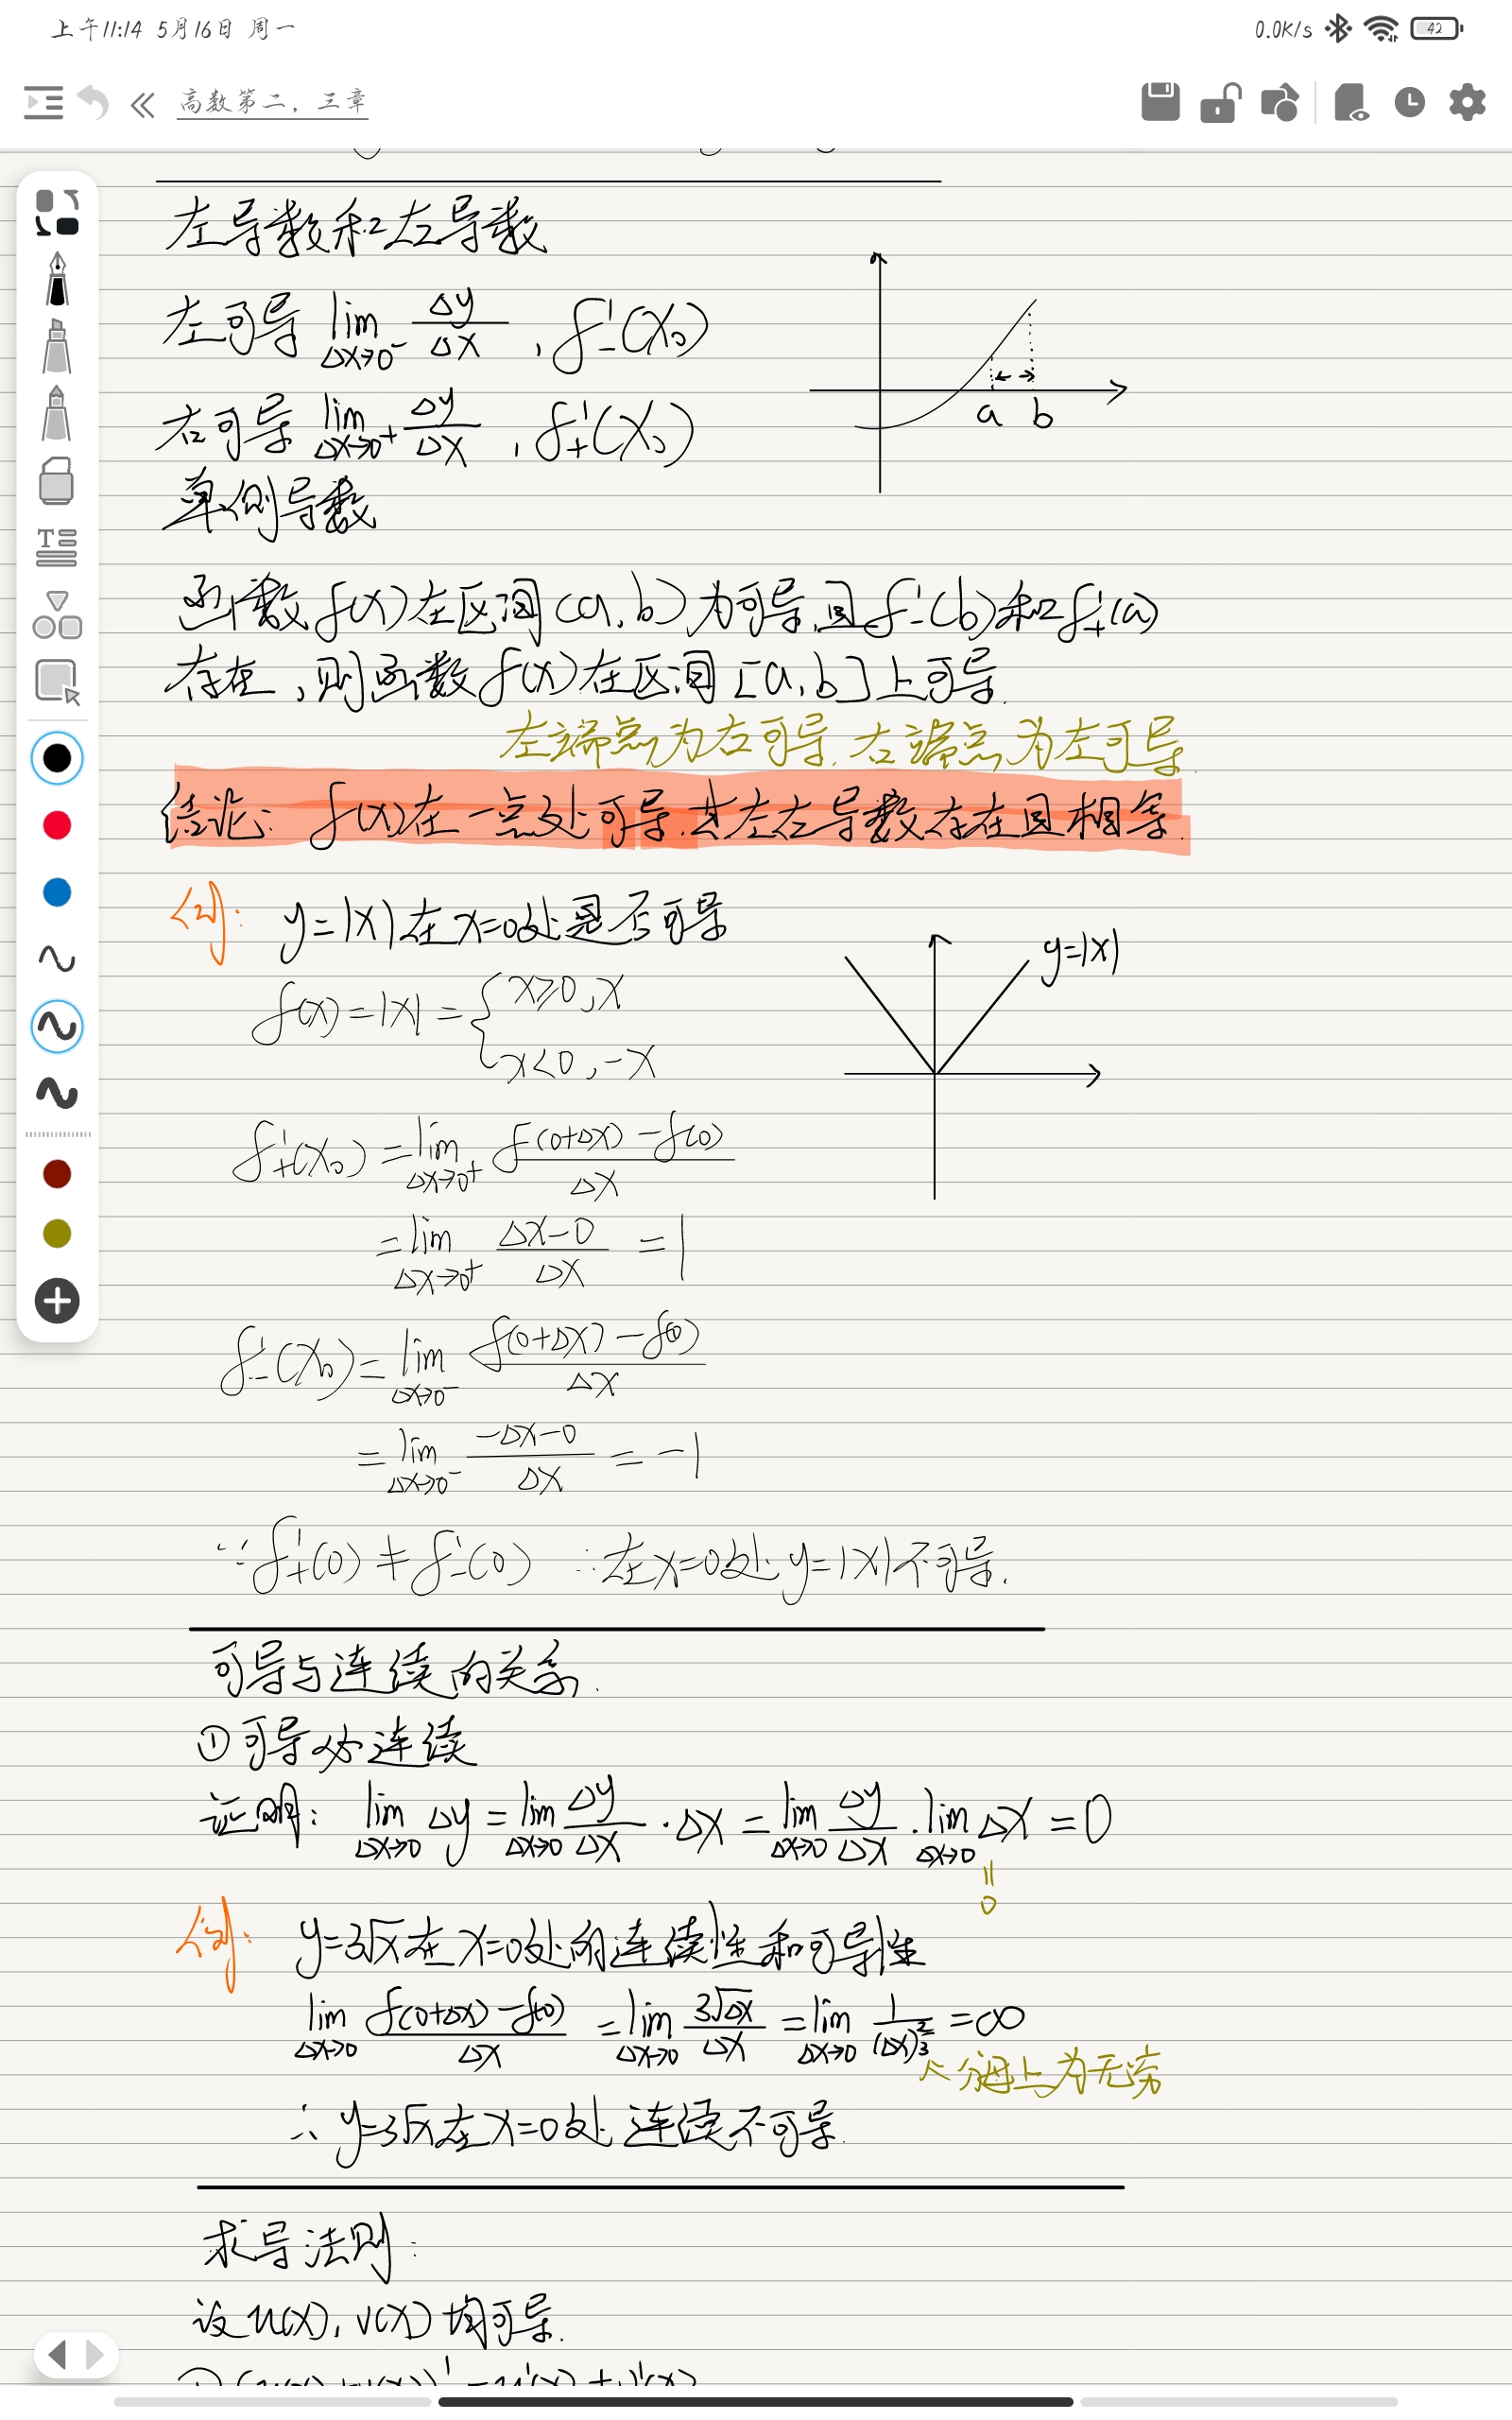 上午11:14 5月16日 周一
0.0K/s
42
高数第二，三章
左导数和右导数
左可导 lim Δx→0⁻ Δy/Δx , f₋'(x₀)
右可导 lim Δx→0⁺ Δy/Δx , f₊'(x₀)
a b
单侧导数
函数f(x)在区间(a,b)为可导,且f₋'(b)和f₊'(a)
存在,则函数f(x)在区间[a,b]上可导.
左端点为右可导.右端点为左可导.
结论: f(x)在一点处可导.其左右导数存在且相等.
例: y=|x|在x=0处是否可导
y=|x|
f(x)=|x|={x≥0,x
x<0,-x
f₊'(x₀)=lim Δx→0⁺ f(0+Δx)-f(0)/Δx
=lim Δx→0⁺ Δx-0/Δx =1
f₋'(x₀)=lim Δx→0⁻ f(0+Δx)-f(0)/Δx
=lim Δx→0⁻ -Δx-0/Δx =-1
∵f₊'(0)≠f₋'(0) ∴在x=0处y=|x|不可导.
可导与连续的关系.
①可导必连续
证明: lim Δx→0 Δy=lim Δx→0 Δy/Δx·Δx=lim Δx→0 Δy/Δx·lim Δx→0 Δx=0
=0
例: y=3√x在x=0处的连续性和可导性
lim Δx→0 f(0+Δx)-f(0)/Δx =lim Δx→0 3√Δx/Δx =lim Δx→0 1/(Δx)^2/3 =∞
分母上为无穷
∴y=3√x在x=0处连续不可导.
求导法则:
设u(x),v(x)均可导.